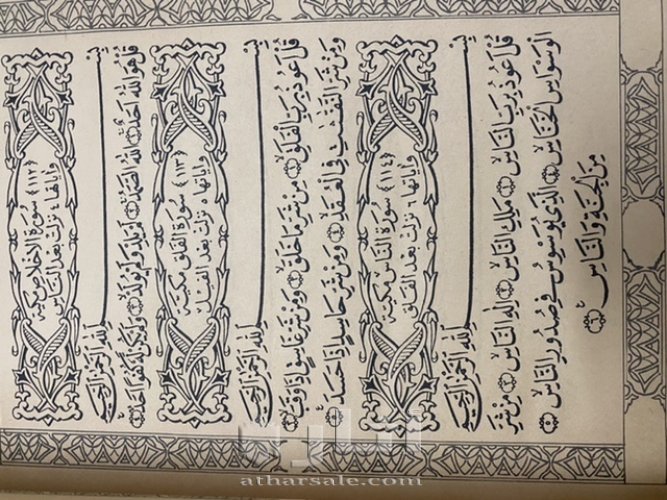 (١١٢) سُورَةُ الإخلاص مكيَّة
وآياتها ٤ نزلت بعد الناس
بِسْمِ اللَّهِ الرَّحْمَٰنِ الرَّحِيمِ
قُلْ هُوَ اللَّهُ أَحَدٌ ١ اللَّهُ الصَّمَدُ ٢ لَمْ يَلِدْ وَلَمْ يُولَدْ ٣ وَلَمْ يَكُن لَّهُ كُفُوًا أَحَدٌ ٤
(١١٣) سُورَةُ الفلق مكيَّة
وآياتها ٥ نزلت بعد الفيل
بِسْمِ اللَّهِ الرَّحْمَٰنِ الرَّحِيمِ
قُلْ أَعُوذُ بِرَبِّ الْفَلَقِ ١ مِن شَرِّ مَا خَلَقَ ٢ وَمِن شَرِّ غَاسِقٍ إِذَا وَقَبَ ٣
وَمِن شَرِّ النَّفَّٰثَٰتِ فِي الْعُقَدِ ٤ وَمِن شَرِّ حَاسِدٍ إِذَا حَسَدَ ٥
(١١٤) سُورَةُ الناس مكيَّة
وآياتها ٦ نزلت بعد الفلق
بِسْمِ اللَّهِ الرَّحْمَٰنِ الرَّحِيمِ
قُلْ أَعُوذُ بِرَبِّ النَّاسِ ١ مَلِكِ النَّاسِ ٢ إِلَٰهِ النَّاسِ ٣ مِن شَرِّ
الْوَسْوَاسِ الْخَنَّاسِ ٤ الَّذِي يُوَسْوِسُ فِي صُدُورِ النَّاسِ ٥
مِنَ الْجِنَّةِ وَالنَّاسِ ٦
atharsale.com